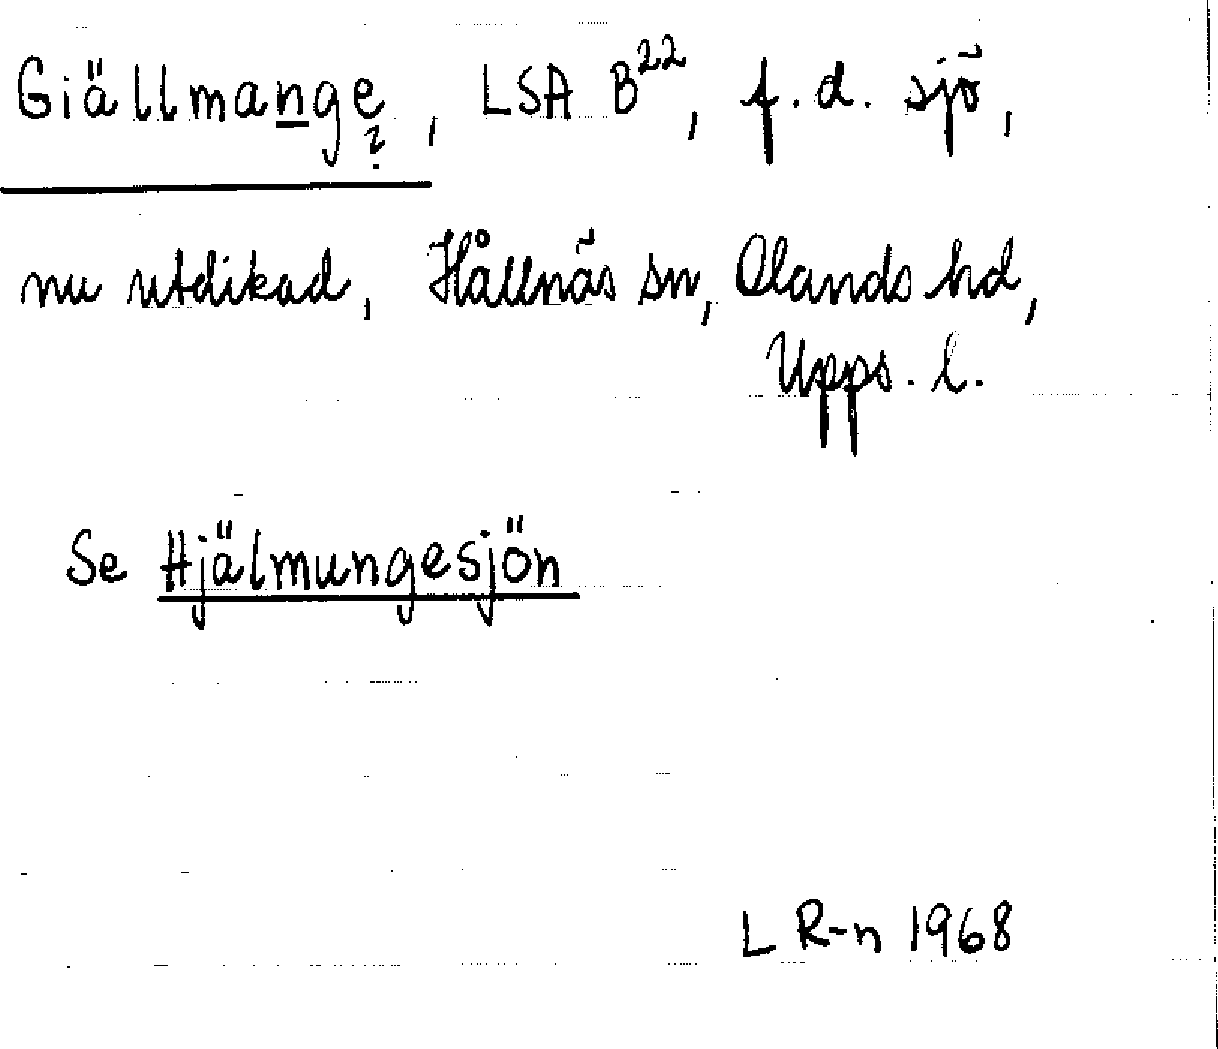 Giällmange, LSA B²², f.d. sjö,
?
nu utdikad, Hållnäs sn, Olands hd,
Upps. l.
Se Hjälmungesjön
L R-n 1968